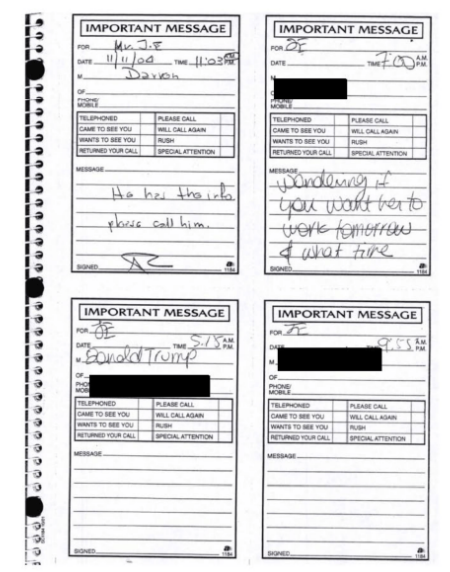 IMPORTANT MESSAGE
FOR Mr. J.E
DATE 11/11/04 TIME 11:03 A.M. P.M.
M Darren
OF
PHONE/
MOBILE
TELEPHONED PLEASE CALL
CAME TO SEE YOU WILL CALL AGAIN
WANTS TO SEE YOU RUSH
RETURNED YOUR CALL SPECIAL ATTENTION
MESSAGE
He has the info.
please call him.
SIGNED
1184
IMPORTANT MESSAGE
FOR JE
DATE TIME 7:00 A.M. P.M.
M
OF
PHONE/
MOBILE
TELEPHONED PLEASE CALL
CAME TO SEE YOU WILL CALL AGAIN
WANTS TO SEE YOU RUSH
RETURNED YOUR CALL SPECIAL ATTENTION
MESSAGE
Wondering if
you want her to
work tomorrow
& what time
SIGNED
1184
IMPORTANT MESSAGE
FOR JE
DATE TIME 5:15 A.M. P.M.
M Donald Trump
OF
TELEPHONED PLEASE CALL
CAME TO SEE YOU WILL CALL AGAIN
WANTS TO SEE YOU RUSH
RETURNED YOUR CALL SPECIAL ATTENTION
MESSAGE
SIGNED
1184
IMPORTANT MESSAGE
FOR JE
DATE 9:55 A.M. P.M.
M
OF
PHONE/
MOBILE
TELEPHONED PLEASE CALL
CAME TO SEE YOU WILL CALL AGAIN
WANTS TO SEE YOU RUSH
RETURNED YOUR CALL SPECIAL ATTENTION
MESSAGE
SIGNED
1184